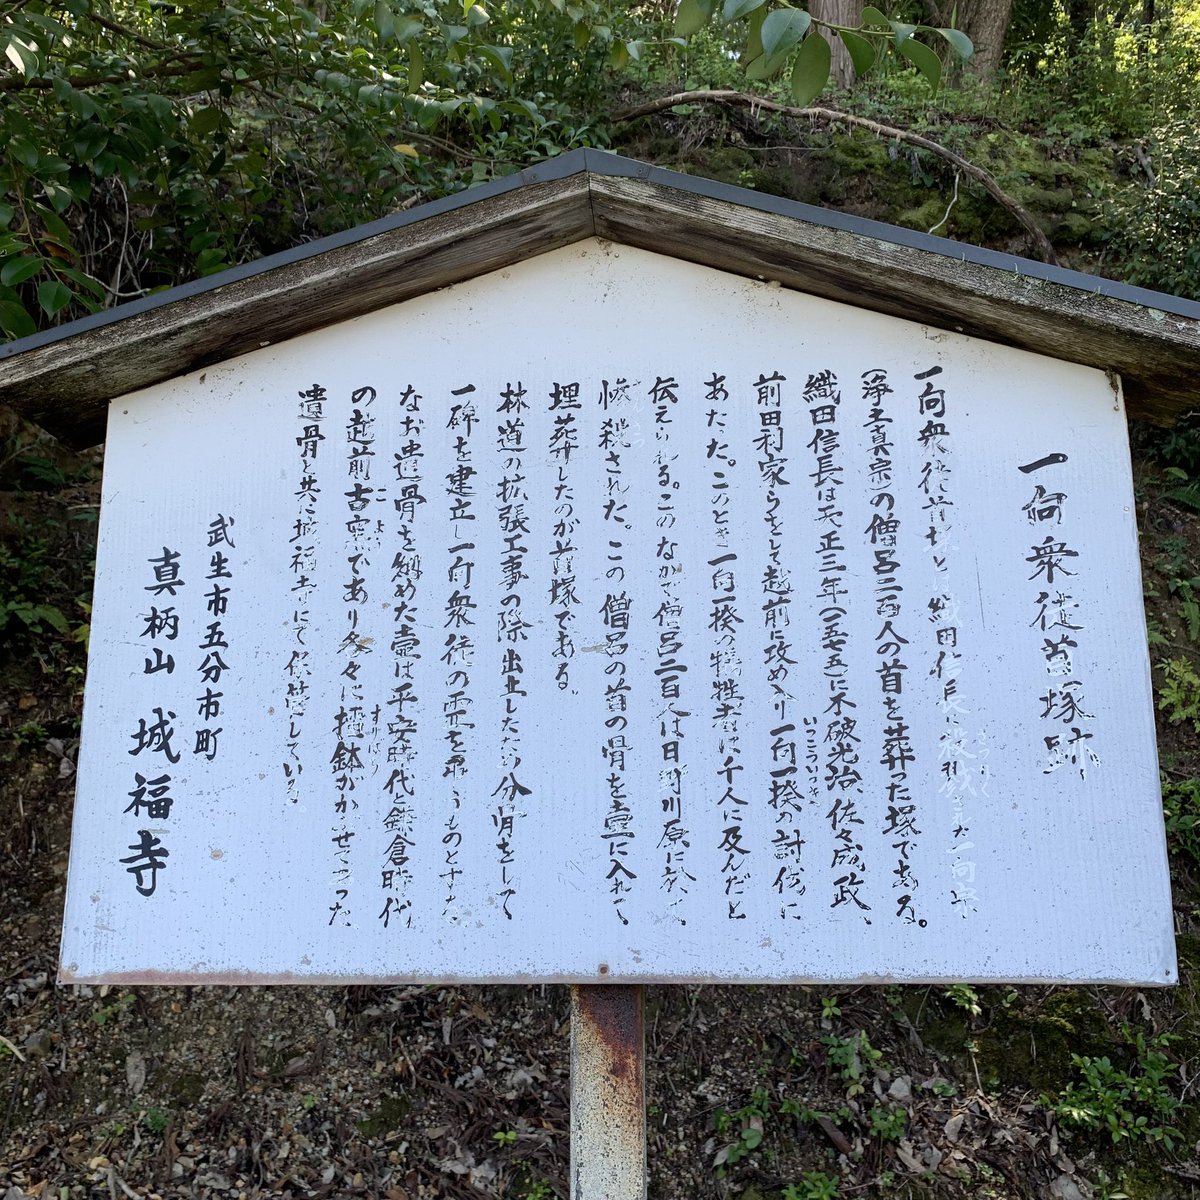 一向衆徒首塚跡
一向衆徒首塚とは織田信長に殺戮された一向宗
さつりく
(浄土真宗)の僧呂二百人の首を葬った塚である。
織田信長は天正三年(一五七五)に不破光治、佐々成政、
前田利家らをして越前に攻め入り一向一揆の討伐に
いっこういっき
あたった。このとき一向一揆の犠牲者は千人に及んだと
伝えられる。このなかで僧呂二百人は日野川原に於て、
惨殺された。この僧呂の首の骨を壷に入れて
ざんさつ
埋葬したのが首塚である。
林道の拡張工事の際出土したため分骨をして
一碑を建立し一向衆徒の霊を弔うものとする。
なお遺骨を納めた壷は平安時代と鎌倉時代
の越前古窯であり各々に擂鉢がかぶせてあった
こよう
すりばち
遺骨と共に城福寺にて保管している
武生市五分市町
真柄山 城福寺